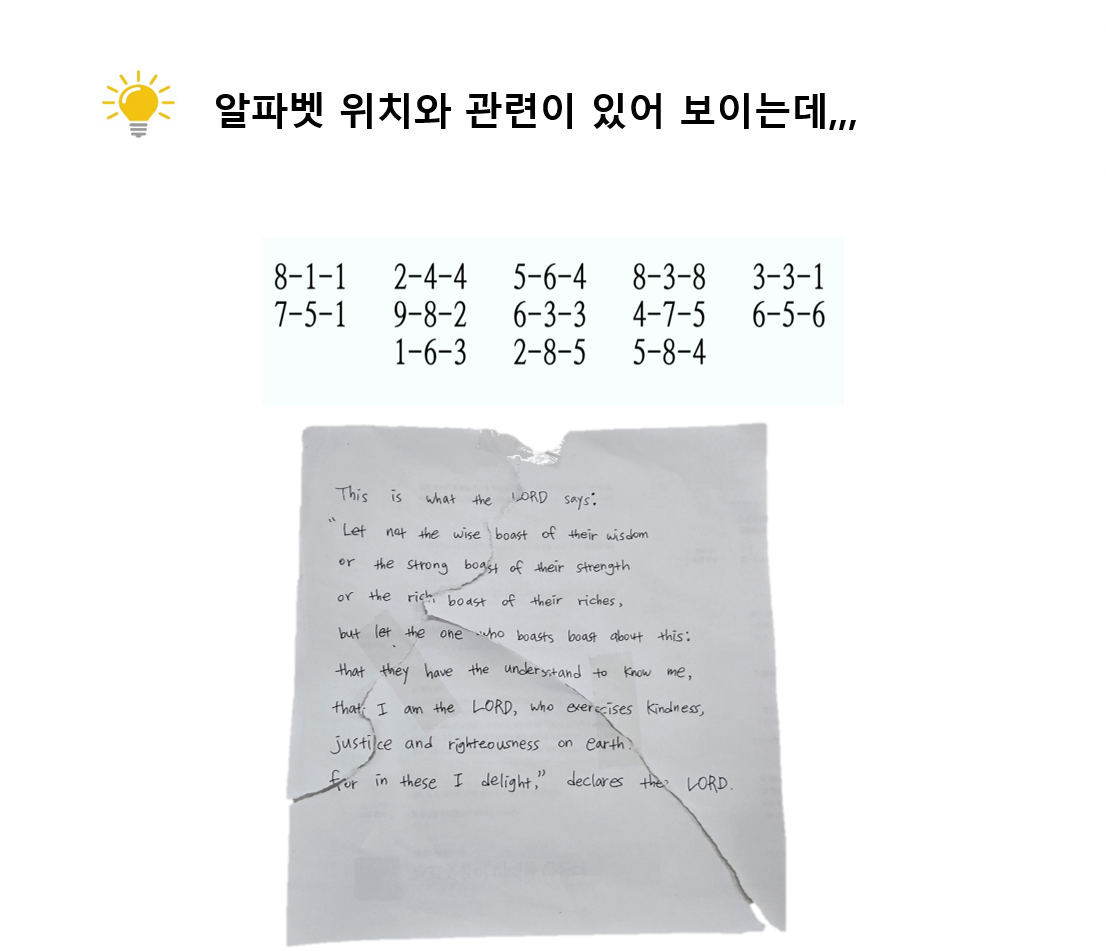 알파벳 위치와 관련이 있어 보이는데,,,
8-1-1 2-4-4 5-6-4 8-3-8 3-3-1
7-5-1 9-8-2 6-3-3 4-7-5 6-5-6
1-6-3 2-8-5 5-8-4
This is what the LORD says:
"Let not the wise boast of their wisdom
or the strong boast of their strength
or the rich boast of their riches,
but let the one who boasts boast about this:
that they have the understand to know me,
that I am the LORD, who exercises kindness,
justice and righteousness on earth.
for in these I delight," declares the LORD.